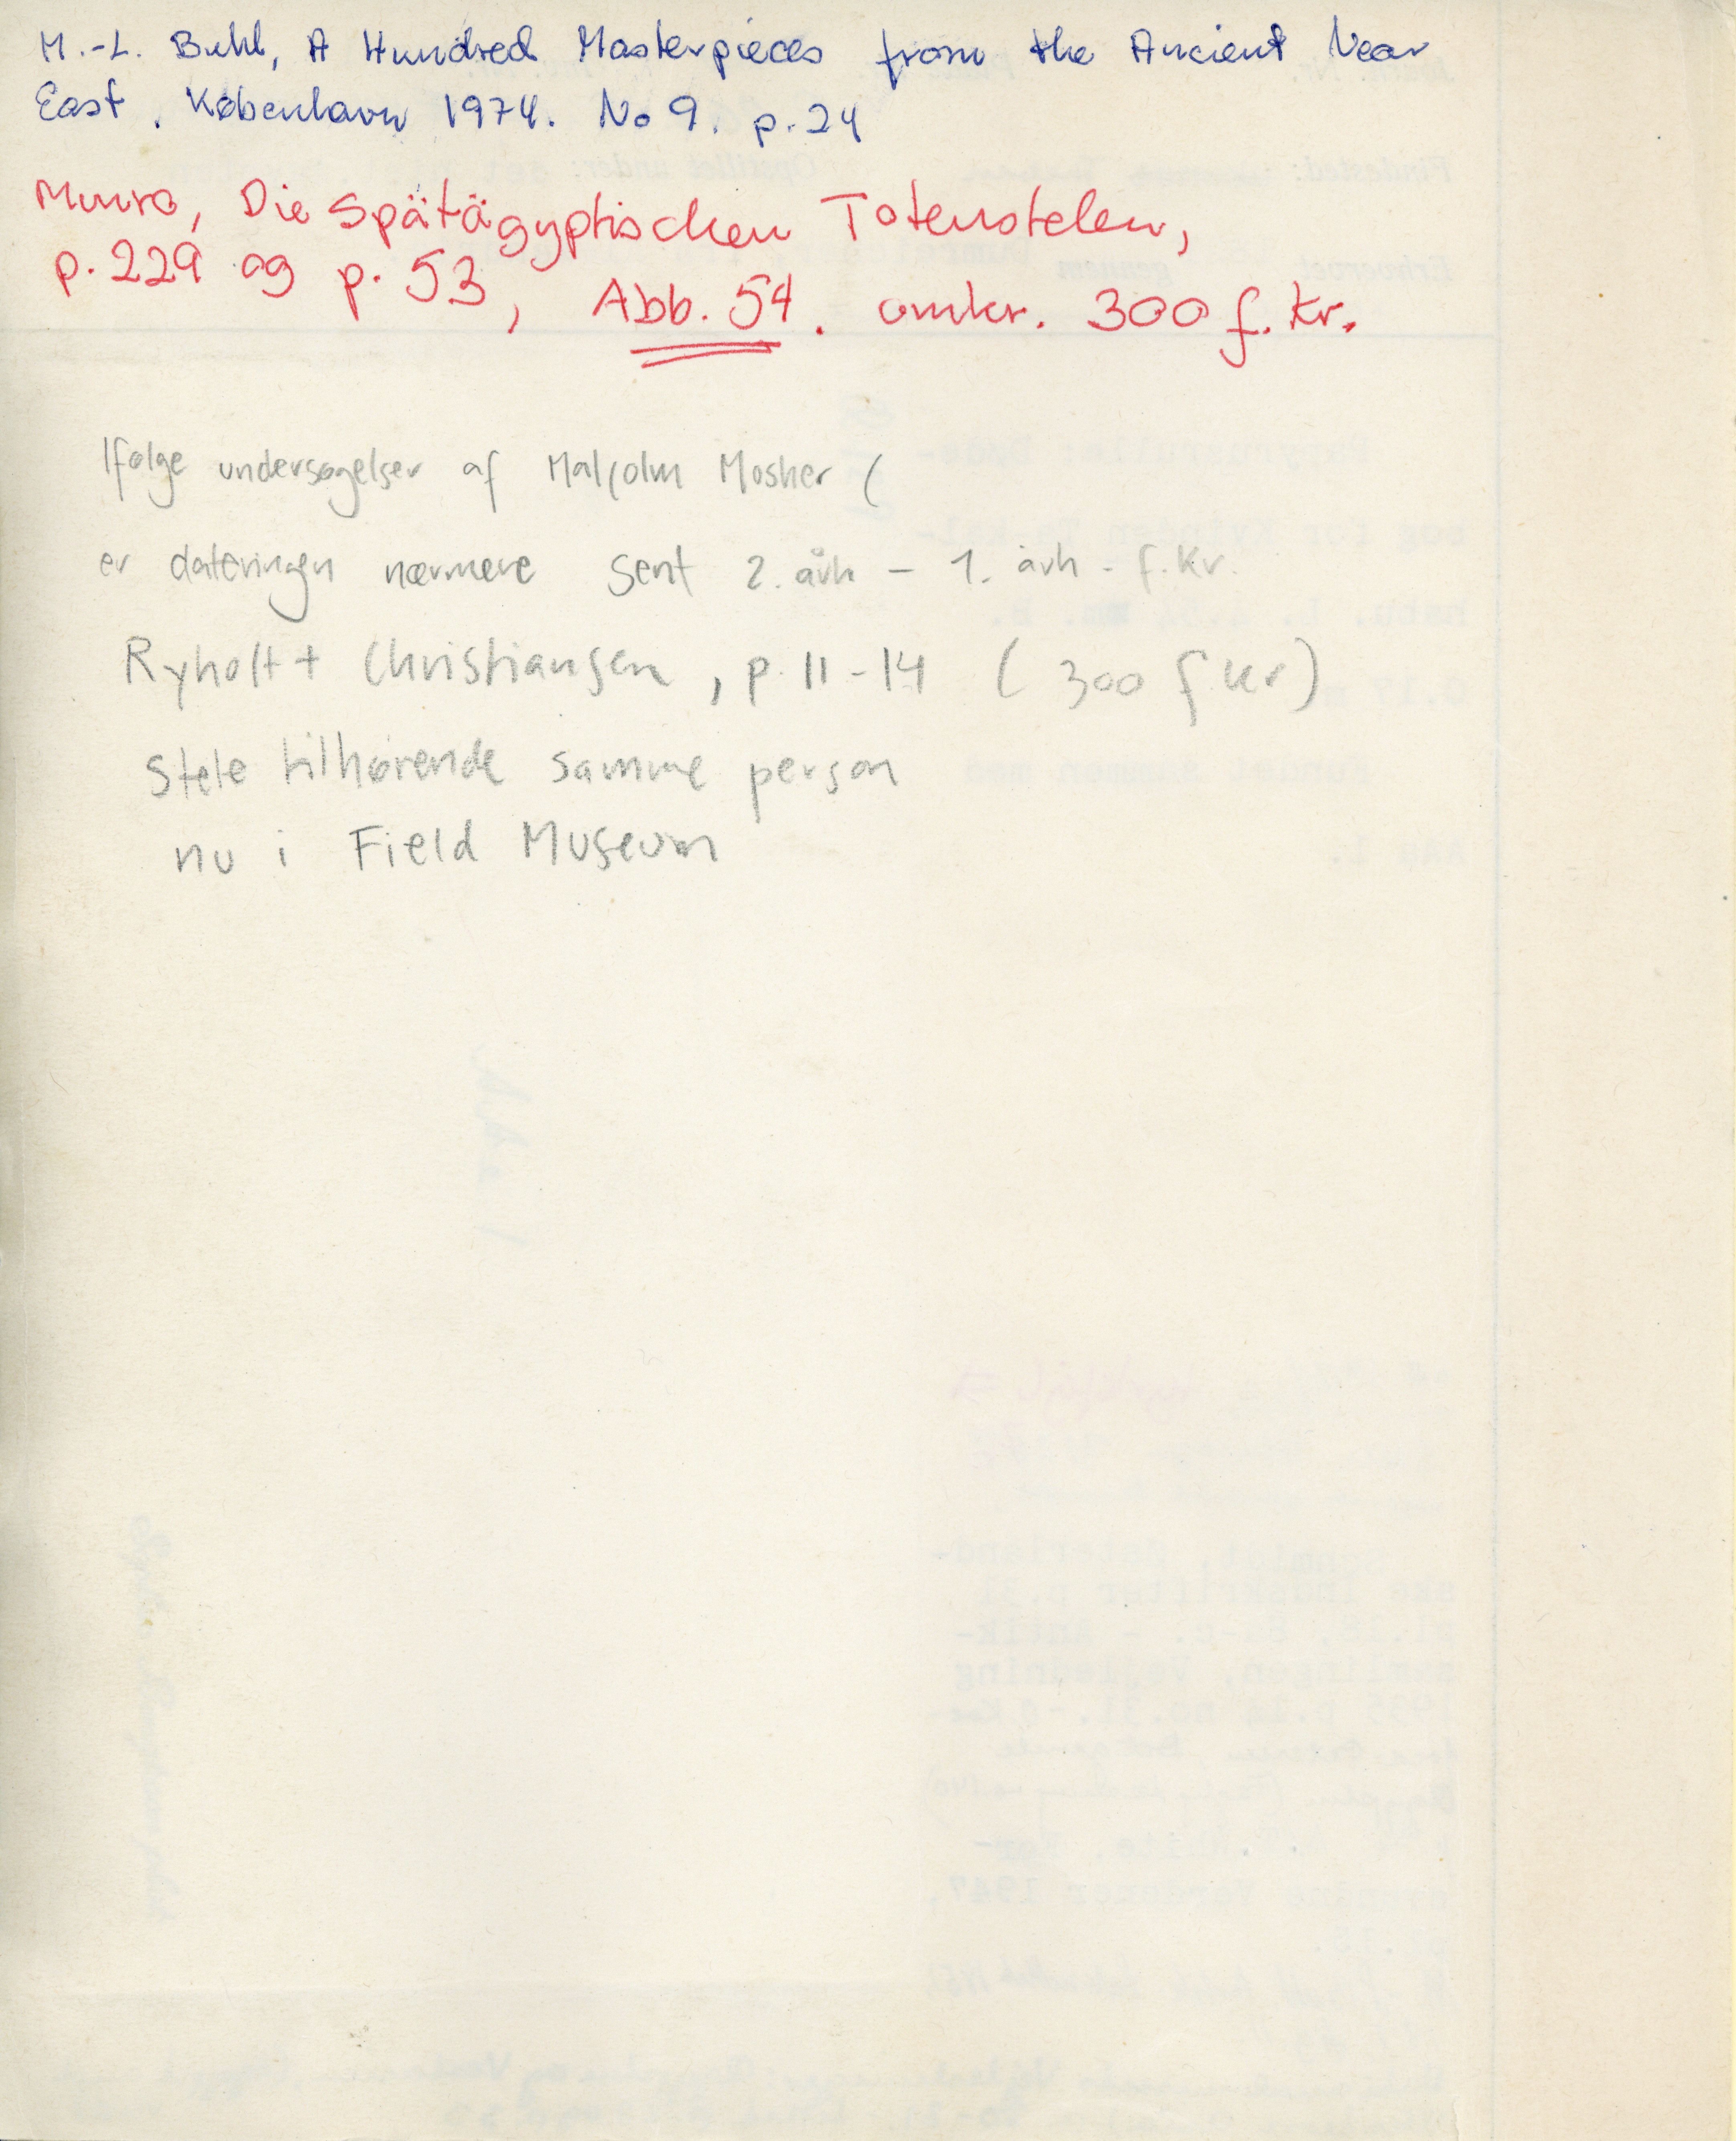 M.-L. Buhl, A Hundred Masterpieces from the Ancient Near
East. København 1974. No 9. p. 24
Munro, Die Spätägyptischen Totenstelen,
p. 229 og p. 53, Abb. 54. omkr. 300 f. Kr.
Ifølge undersøgelser af Malcolm Mosher (
er dateringen nærmere sent 2. årh – 1. årh. f. Kr.
Ryholt + Christiansen, p. 11-14 (300 f Kr)
Stele tilhørende samme person
nu i Field Museum